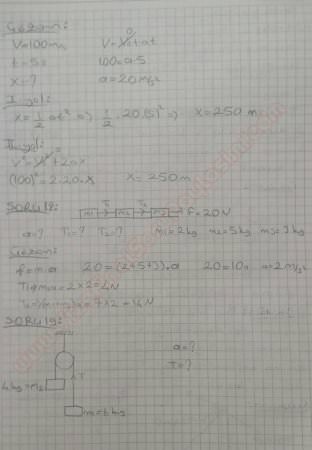 Çözüm:
V=100m/s V=V₀+at
t=5s 100=a.5
x=? a=20m/s²
I. yol:
x=1/2 at² => 1/2 .20.(5)² => x=250 m
II. yol:
V²=V₀²+2ax
(100)²=2.20.x x=250m
SORU 18:
m1 T1 m2 T2 m3 F=20N
a=? T1=? T2=? m1=2kg m2=5kg m3=3kg
Çözüm:
f=m.a 20=(2+5+3).a 20=10a a=2m/s²
T1=m1.a=2×2=4N
T2=(m1+m2)a=7×2=14N
SORU 19:
a=?
T=?
T
4kg=m2
m1=6kg